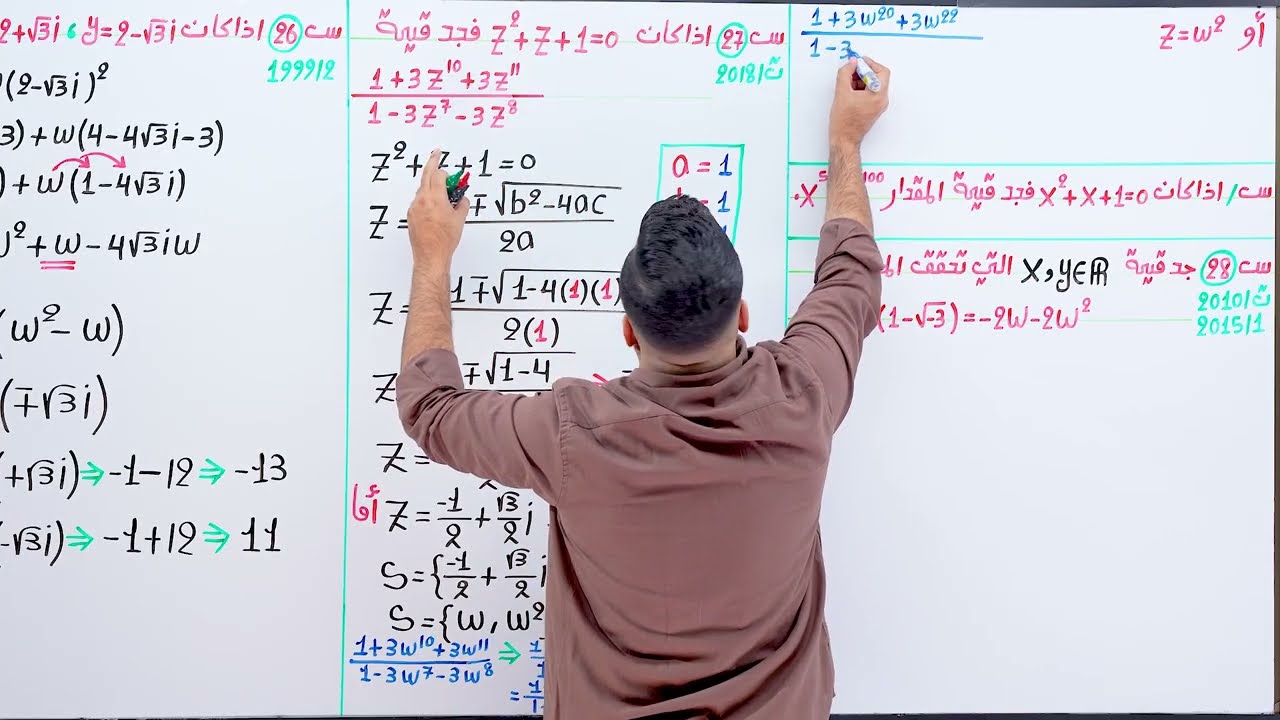 س 26 اذا كانت y=2-√3i ، 2+√3i
1999/2
(2-√3i)²
3)+w(4-4√3i-3)
)+w(1-4√3i)
²+w-4√3iw
(w²-w)
(∓√3i)
+√3i)⇒-1-12⇒-13
-√3i)⇒-1+12⇒11
س 27 اذا كانت z²+z+1=0 فجد قيمة
2018/ت
1+3z¹⁰+3z¹¹
1-3z⁷-3z⁸
z²+z+1=0
a=1
1
z=
∓√b²-4ac
2a
z=
1∓√1-4(1)(1)
2(1)
z
∓√1-4
z=
أما z=-1/2+√3/2 i
S={-1/2+√3/2 i
S={w,w²
1+3w¹⁰+3w¹¹ ⇒
1-3w⁷-3w⁸
=
أو z=w²
1+3w²⁰+3w²²
1-3
س/ اذا كانت x²+x+1=0 فجد قيمة المقدار
س 28 جد قيمة x,y∈R التي تحقق
2010/ت
2015/1
(1-√-3)=-2w-2w²